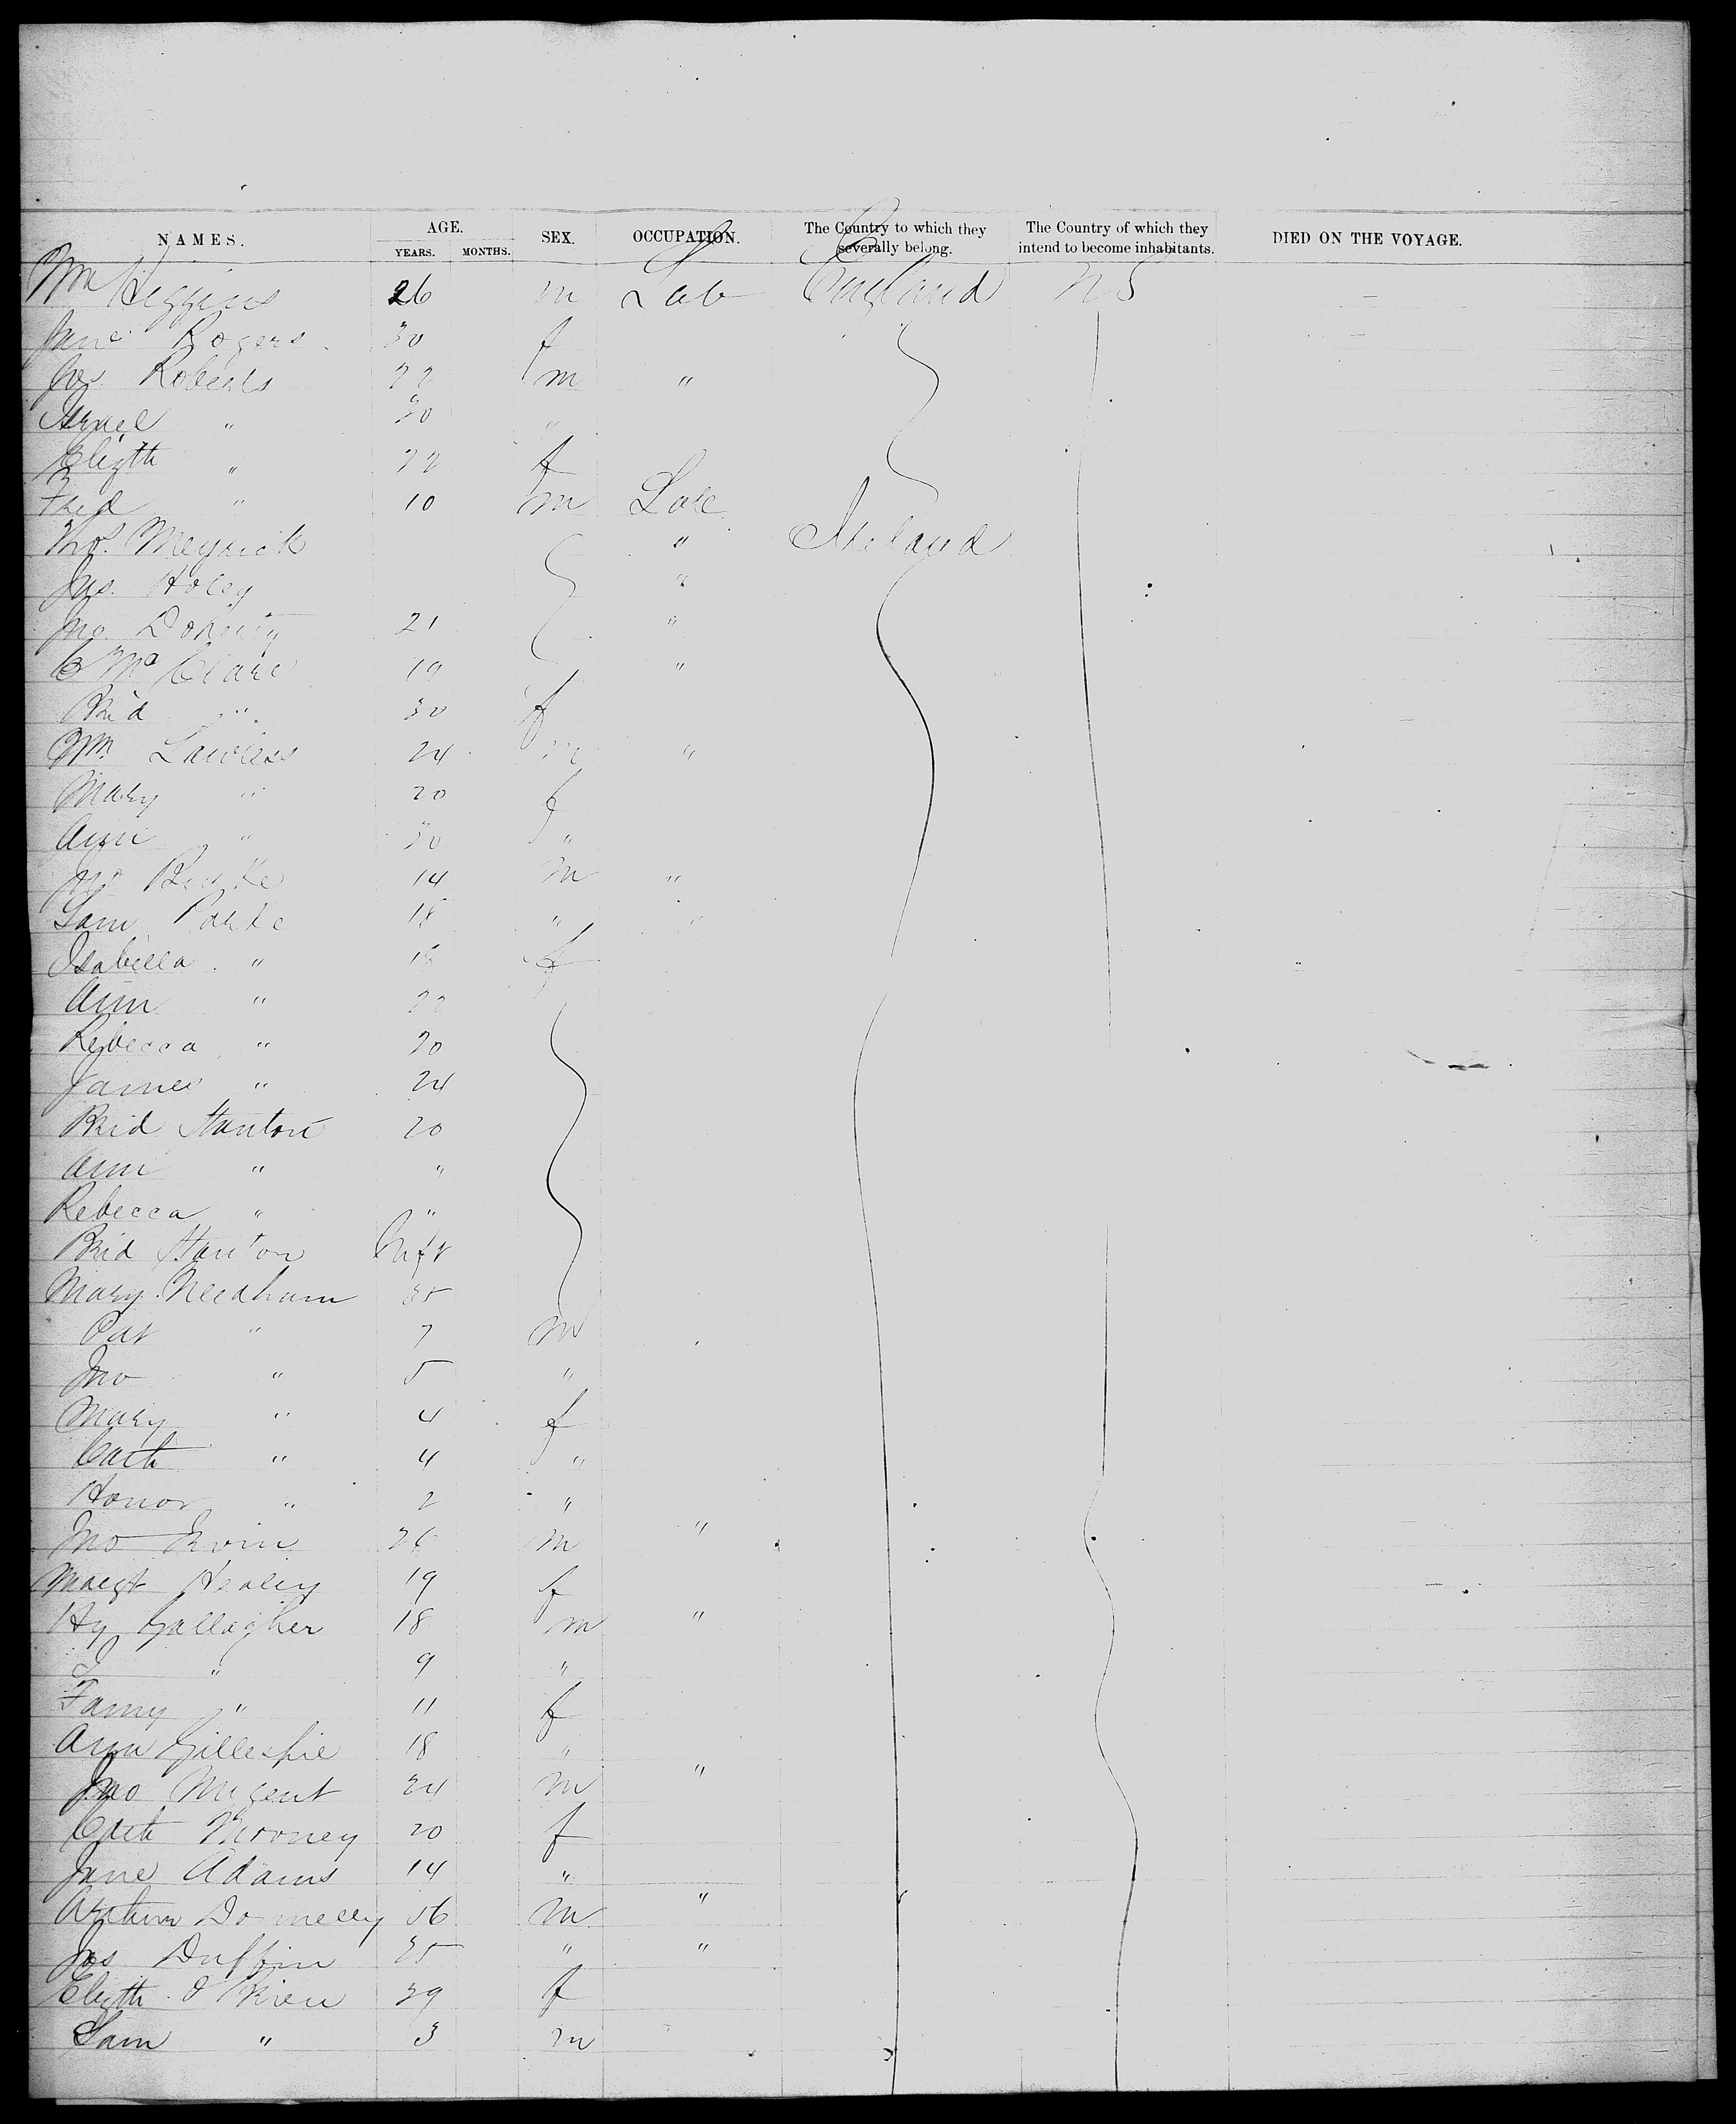 NAMES. AGE. SEX. OCCUPATION. The Country to which they severally belong. The Country of which they intend to become inhabitants. DIED ON THE VOYAGE.
YEARS. MONTHS.
Wm Higgins 26 m Lab England US
Jane Rogers 30 f
Jos. Roberts 22 m "
Israel " 30 "
Elizth " 22 f
Fred " 10 m Lab
Thos. Meyrick " Ireland
Jas. Holey "
Jno Doherty 21 "
Mc Clare 19 "
Brid " 30 f
Wm Lawless 24 m "
Mary " 20 f
Ann " 30 "
Jno Burke 14 m "
Sam Parke 18 " "
Isabella " 18 f
Ann " 22
Rebecca " 20
James " 24
Brid Stanton 20
Ann " "
Rebecca " "
Brid Stanton Inft
Mary Needham 35
Pat " 7 m
Jno " 5 "
Mary " 4 f
Cath " 4 "
Honor " 2 "
Jno Irvin 26 m "
Margt Healey 19 f
Hy Gallagher 18 m "
" 9 "
Fanny " 11 f
Ann Gillespie 18 "
Jno Nugent 24 m "
Cath Mooney 20 f
Jane Adams 14 "
Arthur Donnelly 56 m "
Jas Duffin 35 " "
Elizth O'Brien 39 f
Sam " 3 m